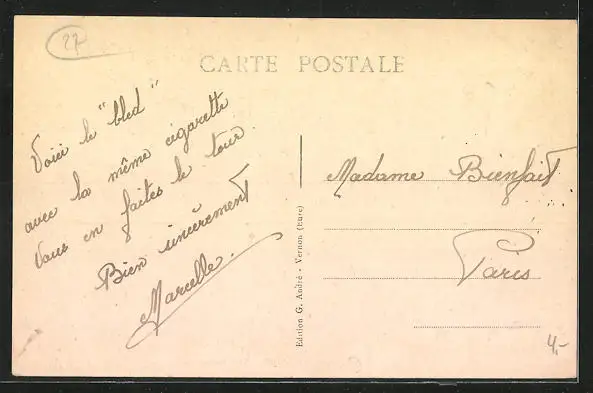 27
CARTE POSTALE
Voici le "bled"
avec la même cigarette
Vous en faites le tour.
Bien sincèrement
Marcelle.
Edition G. André - Vernon (Eure)
Madame Bienfait
Paris
4,-